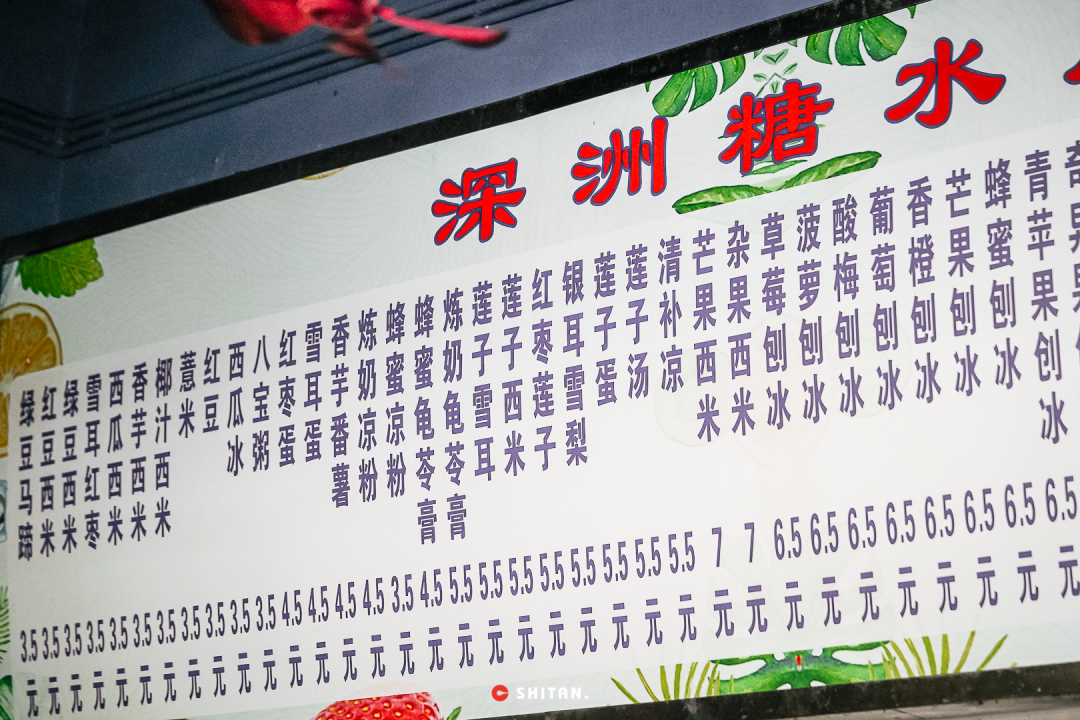 深洲糖水
绿豆马蹄 3.5元
红豆西米 3.5元
绿豆西米 3.5元
雪耳红枣 3.5元
西瓜西米 3.5元
香芋西米 3.5元
椰汁西米 3.5元
薏米 3.5元
红豆 3.5元
西瓜冰 3.5元
八宝粥 3.5元
红枣蛋 4.5元
雪耳蛋 4.5元
香芋番薯 4.5元
炼奶凉粉 4.5元
蜂蜜凉粉 3.5元
蜂蜜龟苓膏 4.5元
炼奶龟苓膏 5.5元
莲子雪耳 5.5元
莲子西米 5.5元
红枣莲子 5.5元
银耳雪梨 5.5元
莲子蛋 5.5元
莲子汤 5.5元
清补凉 5.5元
芒果西米 7元
杂果西米 7元
草莓刨冰 6.5元
菠萝刨冰 6.5元
酸梅刨冰 6.5元
葡萄刨冰 6.5元
香橙刨冰 6.5元
芒果刨冰 6.5元
蜂蜜刨冰 6.5元
青苹果创冰 6.5元
SHITAN.